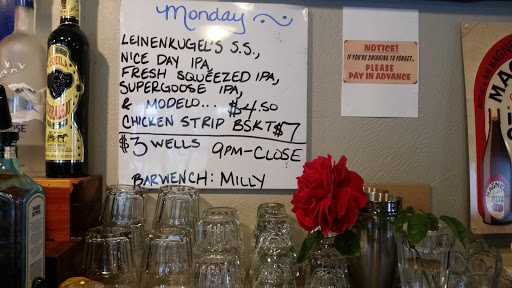 Monday
LEINENKUGEL'S S.S.,
NICE DAY IPA,
FRESH SQUEEZED IPA,
SUPERGOOSE IPA,
& MODELO... $4.50
CHICKEN STRIP BSKT $7
$3 WELLS 9PM-CLOSE
BARWENCH: MILLY
NOTICE!
IF YOU'RE DRINKING TO FORGET..
PLEASE
PAY IN ADVANCE